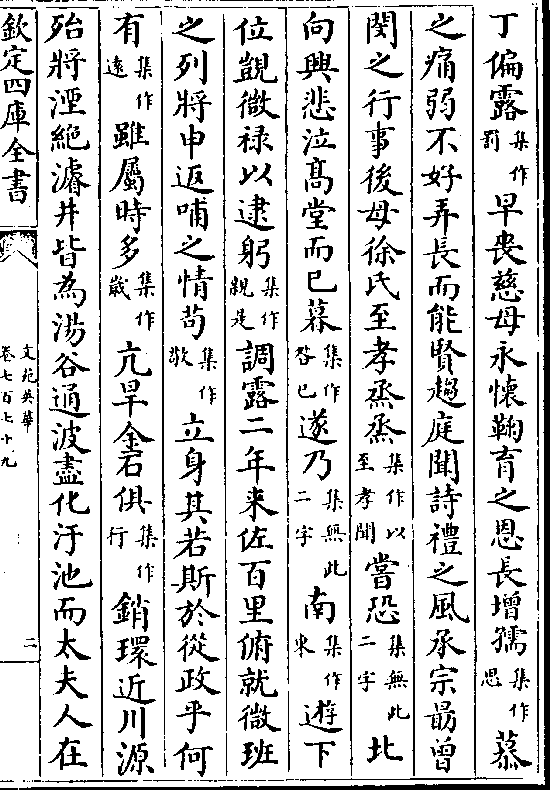 丁偏露集作罰早喪慈母永懷鞠育之恩長增孺集作思慕
之痛弱不好弄長而能賢趨庭聞詩禮之風承宗勗曾
閔之行事後母徐氏至孝烝烝集作以至孝聞嘗恐集無此二字北
向興悲泣髙堂而已暮集作咎已遂乃集無此二字南集作東逰下
位覬微禄以逮躬集作親是調露二年来佐百里俯就微班
之列將申返哺之情苟集作敬立身其若斯於從政乎何
有集作逺雖屬時多集作嵗亢旱金石俱集作行銷環近川源
殆將湮絶濬井皆為湯谷通波盡化汙池而太夫人在
欽定四庫全書
文苑英華
卷七百七十九
二